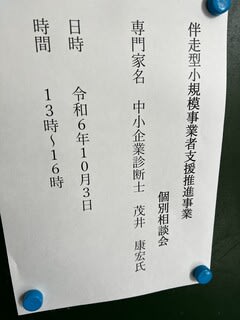 伴走型小規模事業者支援推進事業
個別相談会
専門家名　中小企業診断士　茂井　康宏氏
日時　令和６年１０月３日
時間　１３時～１６時